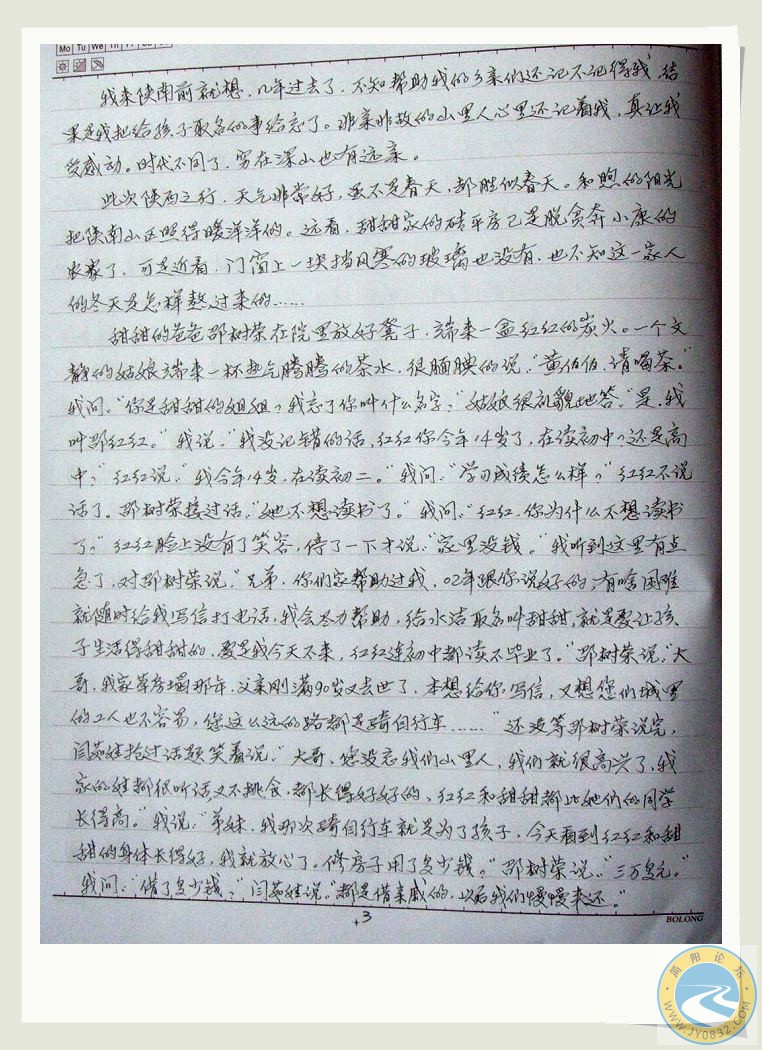 Mo Tu We Th Fr Sa Su
我来陕南前就想，几年过去了，不知帮助我的乡亲们还记不记得我，结
果是我把给孩子取名的事给忘了。非亲非故的山里人心里还记着我，真让我
受感动。时代不同了，穷在深山也有远亲。
此次陕西之行，天气非常好，虽不是春天，却胜似春天。和煦的阳光
把陕南山区照得暖洋洋的。远看，甜甜家的砖平房已是脱贫奔小康的
农家了，可是近看，门窗上一块挡风寒的玻璃也没有，也不知这一家人
的冬天是怎样熬过来的……
甜甜的爸爸邵树荣在院里放好凳子，端来一盆红红的炭火。一个文
静的姑娘端来一杯热气腾腾的茶水，很腼腆的说：“黄伯伯，请喝茶。”
我问：“你是甜甜的姐姐？我忘了你叫什么名字？”姑娘很礼貌地答：“是，我
叫邵红红。”我说：“我没记错的话，红红你今年14岁了，在读初中？还是高
中？”红红说：“我今年14岁，在读初二。”我问：“学习成绩怎么样？”红红不说
话了。邵树荣接过话：“她不想读书了。”我问：“红红，你为什么不想读书
了？”红红脸上没有了笑容，停了一下才说：“家里没钱。”我听到这里有点
急了，对邵树荣说：“兄弟，你们家帮助过我，02年跟你说好的，有啥困难
就随时给我写信打电话，我会尽力帮助，给水洁取名叫甜甜，就是要让孩
子生活得甜甜的，要是我今天不来，红红连初中都读不毕业了。”邵树荣说：“大
哥，我家草房塌那年，父亲刚满90岁又去世了，本想给你写信，又想您们城里
的工人也不容易，您这么远的路都是骑自行车……”还没等邵树荣说完，
闫茹娃抢过话题笑着说：“大哥，您没忘我们山里人，我们就很高兴了，我
家的娃都很听话又不挑食，都长得好好的，红红和甜甜都比她们的同学
长得高。”我说：“弟妹，我那次骑自行车就是为了孩子，今天看到红红和甜
甜的身体长得好，我就放心了。修房子用了多少钱。”邵树荣说：“三万多元。”
我问：“借了多少钱？”闫茹娃说：“都是借亲戚的，以后我们慢慢来还。”
3
BOLONG
简阳论坛
WWW.JY0832.COM